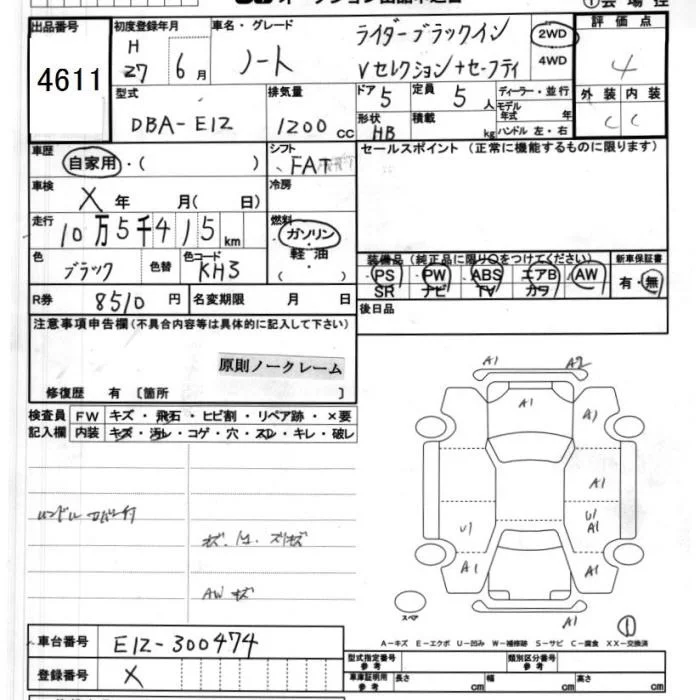 ①会場控
出品番号
4611
初度登録年月
H 27 6月
車名・グレード
ノート
ライダーブラックイン
Vセレクション+セーフティ
2WD
4WD
評価点
4
外装 内装
C C
型式
DBA-E12
排気量
1200cc
ドア 5
定員 5人
形状 HB
積載 kg
ディーラー・並行
モデル年式 年
ハンドル 左・右
車歴
自家用・( )
シフト
FAT
冷房
車検
X 年 月( 日)
走行
10万5千415km
燃料
ガソリン
軽油
( )
色
ブラック
色替
色コード
KH3
R券 8510円
名変期限 月 日
セールスポイント(正常に機能するものに限ります)
装備品(純正品に限り○をつけてください)
PS PW ABS エアB AW
SR ナビ TV カワ
新車保証書
有・無
後日品
注意事項申告欄(不具合内容等は具体的に記入して下さい)
原則ノークレーム
修復歴 有〔箇所 〕
検査員記入欄
FW キズ・飛石・ヒビ割・リペア跡・×要
内装 キズ・汚レ・コゲ・穴・スレ・キレ・破レ
AW キズ
A1 A2
A1
A1
A1
U1 U1
A1
A1 A1
A1
スペア
①
A-キズ E-エクボ U-凹み W-補修跡 S-サビ C-腐食 XX-交換済
車台番号
E12-300474
登録番号
X
型式指定番号 参考
類別区分番号 参考
車庫証明用 参考
長さ cm 幅 cm 高さ cm